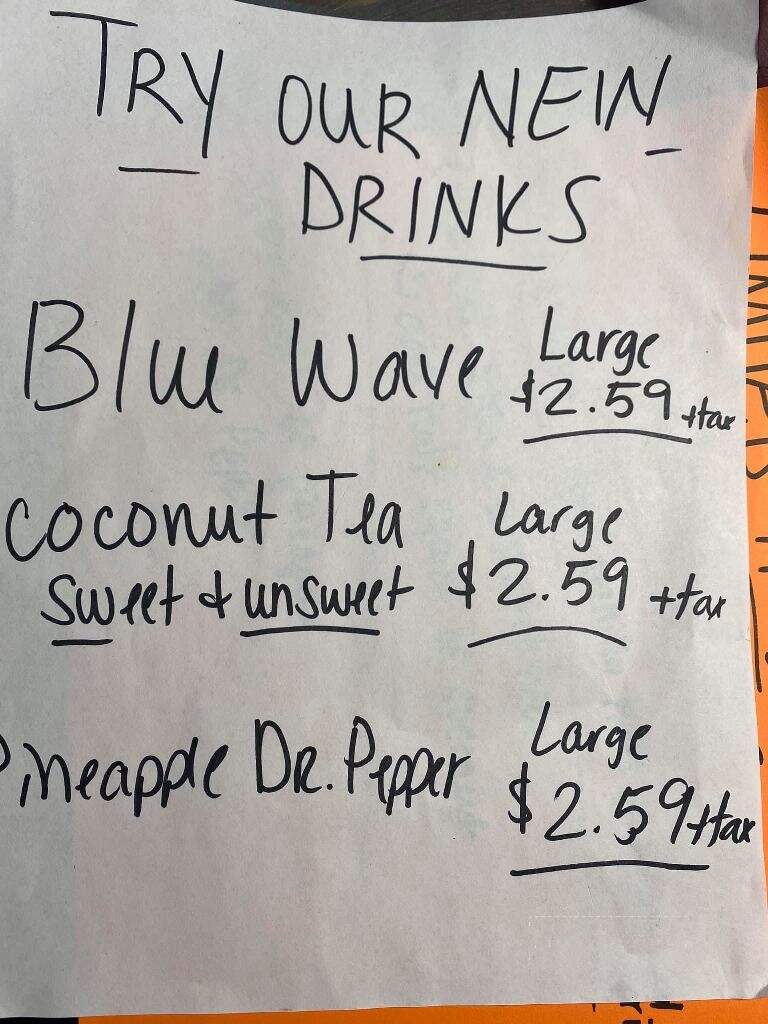 TRY OUR NEW
DRINKS
Blue Wave Large
$2.59 +tax
Coconut Tea Large
sweet & unsweet $2.59 +tax
Pineapple DR. Pepper Large
$2.59 +tax